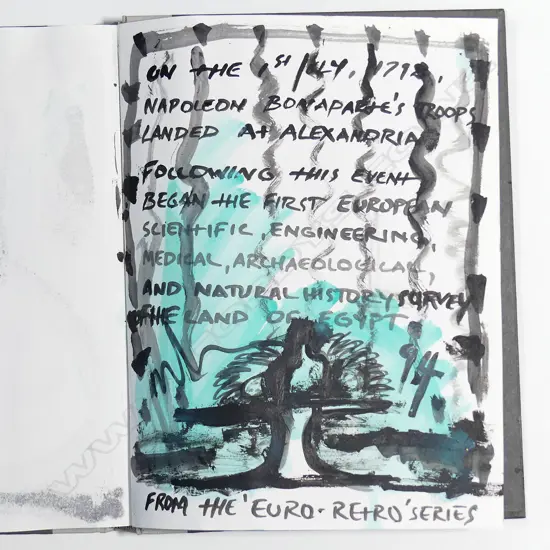 ON THE 1ST JULY, 1798,
NAPOLEON BONAPARTE'S TROOPS
LANDED AT ALEXANDRIA
FOLLOWING THIS EVENT
BEGAN THE FIRST EUROPEAN
SCIENTIFIC, ENGINEERING,
MEDICAL, ARCHAEOLOGICAL,
AND NATURAL HISTORY SURVEY
THE LAND OF EGYPT
94
FROM THE 'EURO-RETRO' SERIES